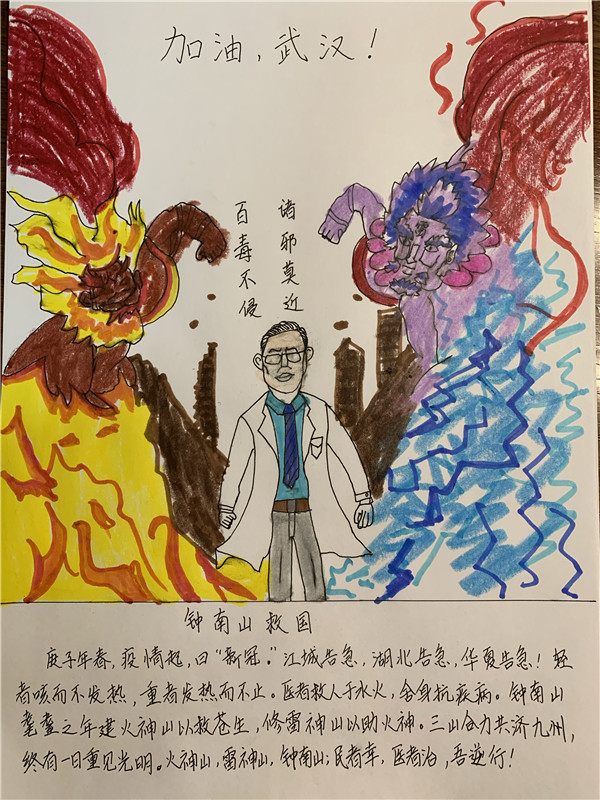 加油，武汉！
诸邪莫近
百毒不侵
钟南山救国
庚子年春，疫情起，曰“新冠。”江城告急，湖北告急，华夏告急！轻
者咳而不发热，重者发热而不止。医者救人于水火，舍身抗疾病。钟南山
耄耋之年建火神山以救苍生，修雷神山以助火神。三山合力共济九州，
终有一日重见光明。火神山，雷神山，钟南山；民者幸，医者治，吾逆行！